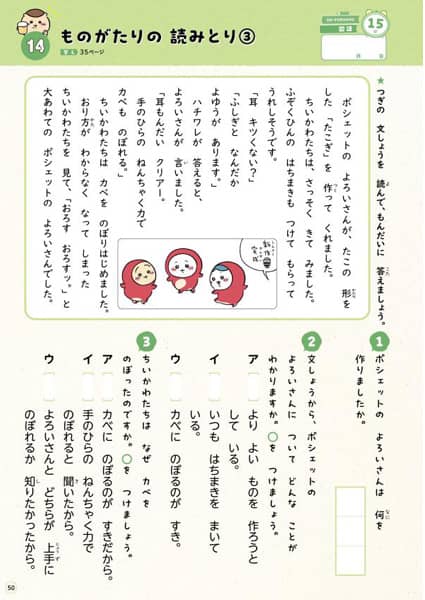 14
ものがたりの 読みとり③
35ページ
15
国語
月 日
★つぎの 文しょうを 読んで、もんだいに 答えましょう。
ポシェットの よろいさんが、たこの 形を
した 「たこぎ」を 作って くれました。
ちいかわたちは、さっそく きて みました。
ふぞくひんの はちまきも つけて もらって
うれしそうです。
「耳 キツくない？」
「ふしぎと なんだか
よゆうが あります。」
ハチワレが 答えると、
よろいさんが 言いました。
「耳もんだい クリアー。
手のひらの ねんちゃく力で
かべも のぼれる。」
ちいかわたちは かべを のぼりはじめました。
おり方が わからなく なって しまった
ちいかわたちを 見て、「おろす おろすッ。」と
大あわての ポシェットの よろいさんでした。
1 ポシェットの よろいさんは 何を
作りましたか。
2 文しょうから、ポシェットの
よろいさんに ついて どんな ことが
わかりますか。○を つけましょう。
ア より よい ものを 作ろうと
して いる。
イ いつも はちまきを まいて
いる。
ウ かべに のぼるのが すき。
3 ちいかわたちは なぜ かべを
のぼったのですか。○を つけましょう。
ア かべに のぼるのが すきだから。
イ 手のひらの ねんちゃく力で
のぼれると 聞いたから。
ウ よろいさんと どちらが 上手に
のぼれるか 知りたかったから。
50